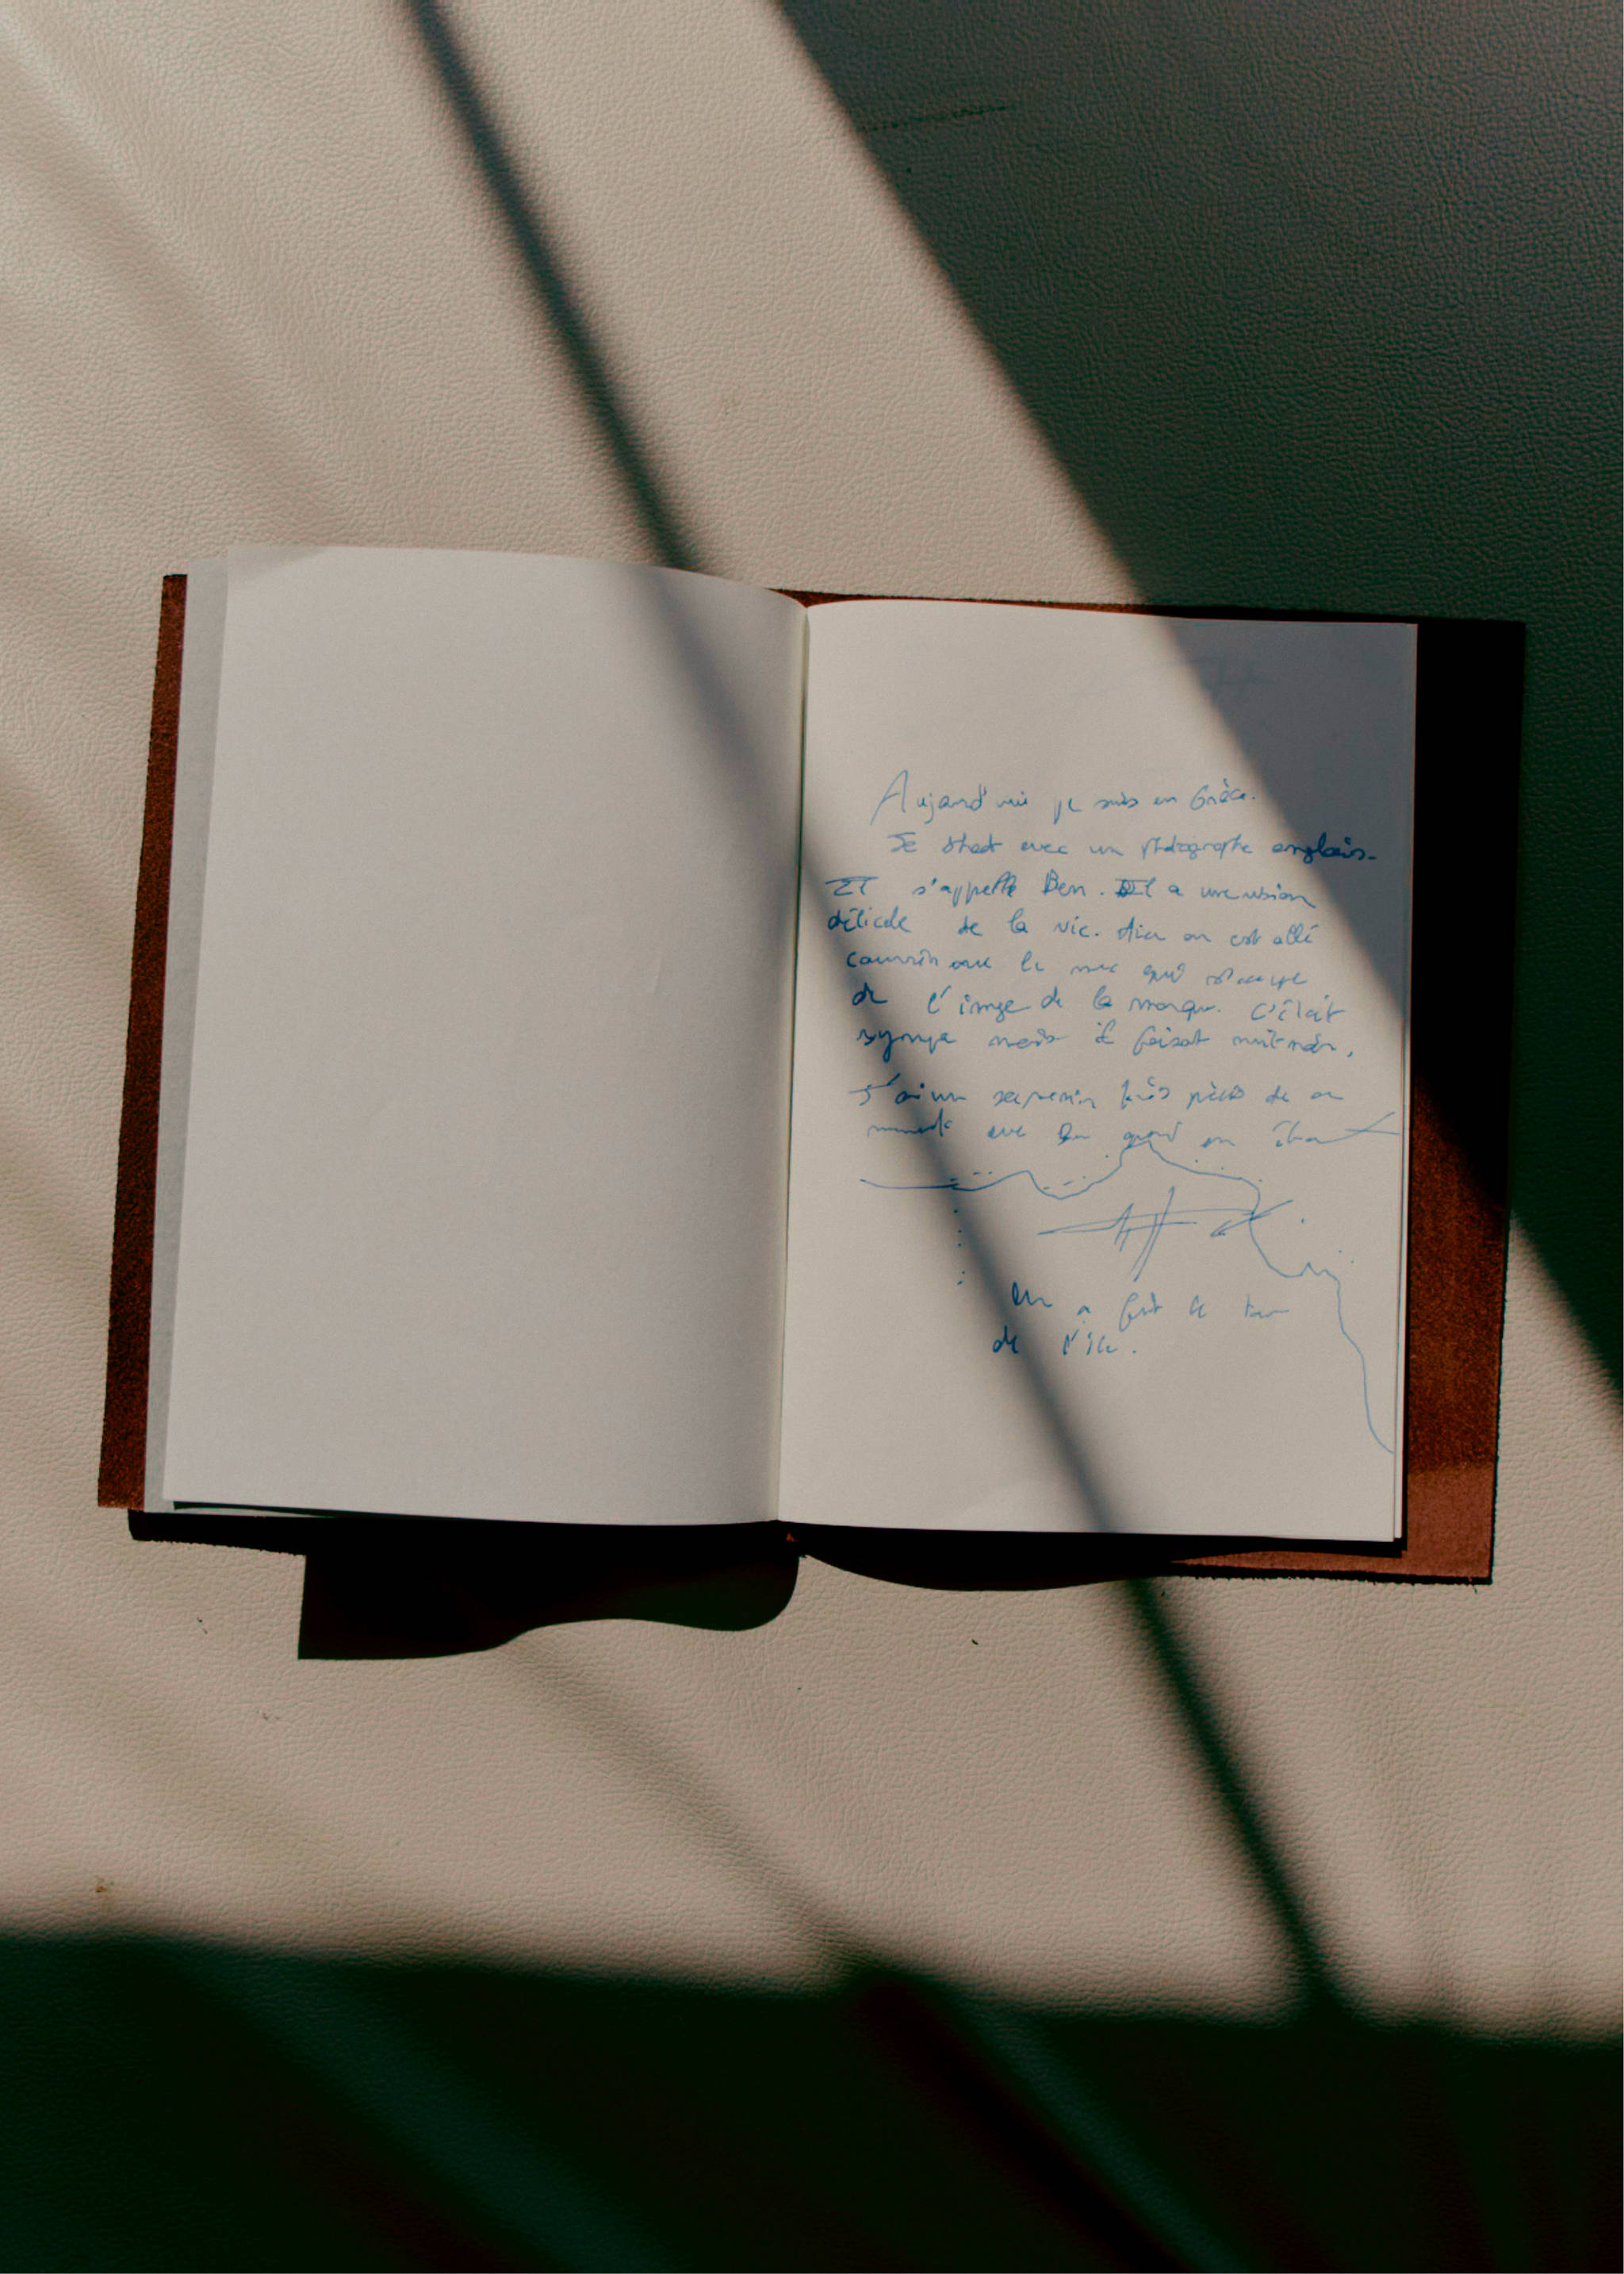 Aujourd'hui je suis en Grèce.
Je shoot avec un photographe anglais.
Il s'appelle Ben. Il a une vision
délicate de la vie. Hier on est allé
courir avec le mec qui s'occupe
de l'image de la marque. C'était
sympa mais il faisait nuit noire.
J'ai un souvenir très précis de ce
avec quand on
on a fait le tour
de l'île.